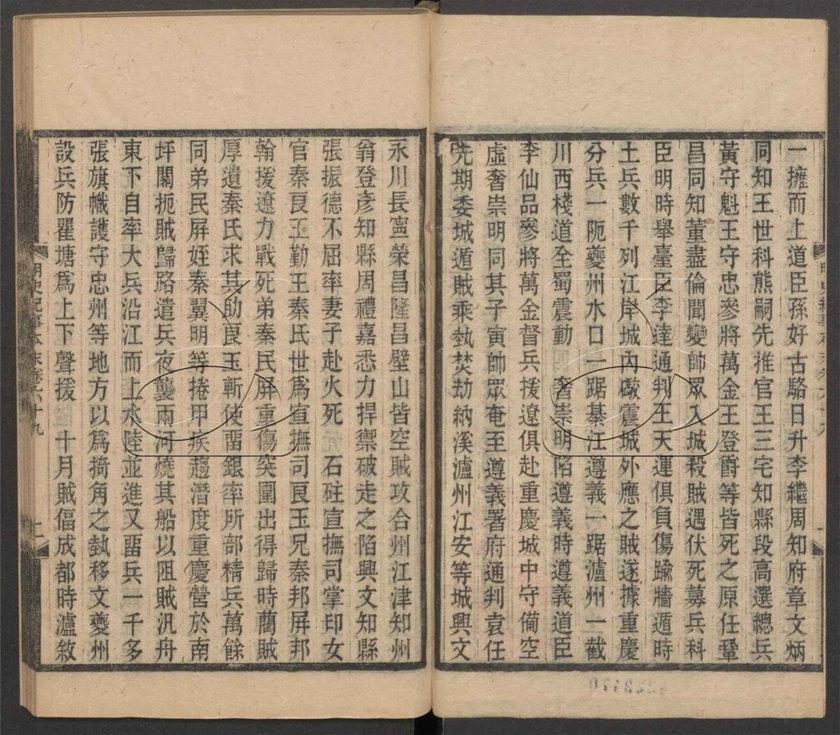 一擁而上道臣孫好古駱日升李繼周知府章文炳
同知王世科熊嗣先推官王三宅知縣段高選總兵
黃守魁王守忠參將萬金王登爵等皆死之原任鞏
昌同知董盡倫聞變帥眾入城殺賊遇伏死募兵科
臣明時舉臺臣李達通判王天運俱負傷踰牆遁時
土兵數千列江岸城內礮震城外應之賊遂據重慶
分兵一阨夔州水口一踞綦江遵義一踞瀘州一截
川西棧道全蜀震動 奢崇明陷遵義時遵義道臣
李仙品參將萬金督兵援遼俱赴重慶城中守備空
虛奢崇明同其子寅帥眾奄至遵義署府通判袁任
先期委城遁賊乘執焚劫納溪瀘州江安等城興文
永川長寧榮昌隆昌壁山皆空賊攻合州江津知州
翁登彥知縣周禮嘉悉力捍禦破走之陷興文知縣
張振德不屈率妻子赴火死 石砫宣撫司掌印女
官秦良玉勤王秦氏世爲宣撫司良玉兄秦邦屏邦
翰援遼力戰死弟秦民屏重傷突圍出得歸時藺賊
厚遺秦氏求其助良玉斬使畱銀率所部精兵萬餘
同弟民屏姪秦翼明等捲甲疾趨潛度重慶營於南
坪關扼賊歸路遣兵夜襲兩河燒其船以阻賊汎舟
東下自率大兵沿江而上水陸並進又畱兵一千多
張旗幟護守忠州等地方以為掎角之埶移文夔州
設兵防瞿塘爲上下聲援 十月賊偪成都時瀘敘
明史紀事本末卷六十九
十一